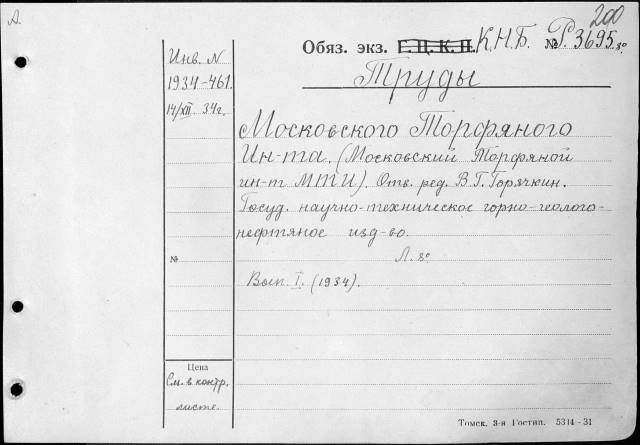 А.
200
Обяз. экз. Г. Ц. К. П. К.Н.Б. № Р.3695.8°
Инв. N
1934-461.
14/XII. 34г.
Труды
Московского Торфяного
Ин-та. (Московский Торфяной
ин-т МТИ). Отв. ред. В.Г. Горячкин.
Госуд. научно-техническое горно-геолого-
нефтяное изд-во.
Л. 8°
№
Вып. I. (1934).
Цена
См. в контр.
листе.
Томск. 3-я Гостип. 5314-31